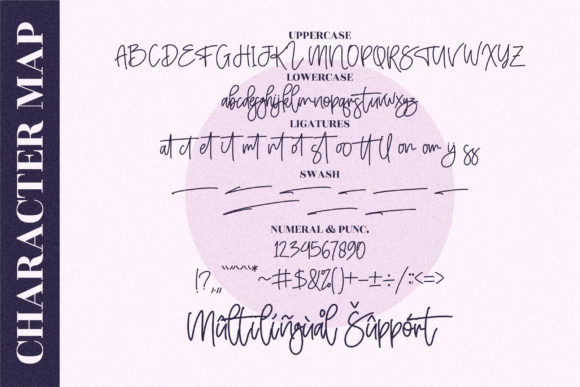 CHARACTER MAP
UPPERCASE
ABCDEFGHIJKLMNOPQRSTUVWXYZ
LOWERCASE
abcdefghijklmnopqrstuvwxyz
LIGATURES
at ct et it mt nt ot st oo tt ll on om ij ss
SWASH
NUMERAL & PUNC.
1234567890
!?,,..""''*~#$&%()+-±÷/:;<=>
Mûltilíñgùål Šûppórt